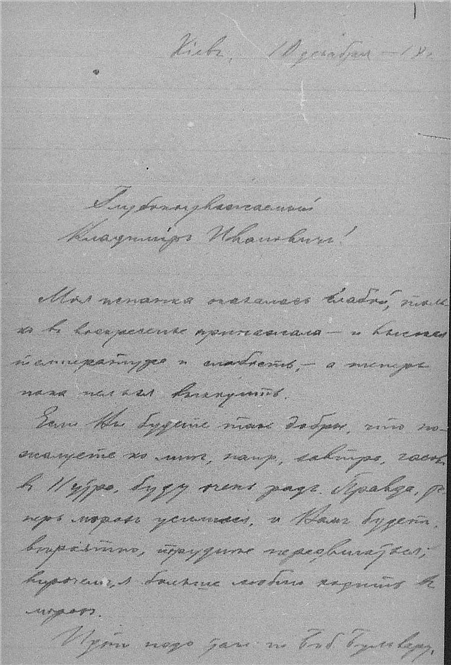 Кiевъ, 10 декабря - 18.
Глубокоуважаемый
Владимiръ Ивановичъ!
Моя испанка оказалась слабой, толь
ко въ воскресенье прижала – и высокая
температура и слабость, – а теперь
пока нельзя выходить.
Если Вы будете такъ добры, что по-
жалуете ко мнѣ, напр, завтра, часовъ
в 11 утра, буду очень радъ. Правда, те
перь морозъ усилился, и Вамъ будетъ,
вѣроятно, труднѣе передвигаться;
впрочемъ, я больше люблю ходить въ
морозъ.
Идти надо такъ: по Биб. Бульвару,